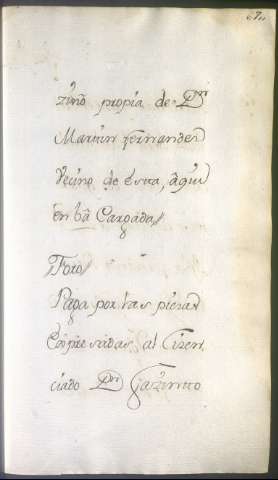 propia de Dn
Martin fernandez
Vecino de esta, aquien
en ba Cargada //
Foro //
Paga por las piezas
Expresadas, al Licen
ciado Dn Jazintto